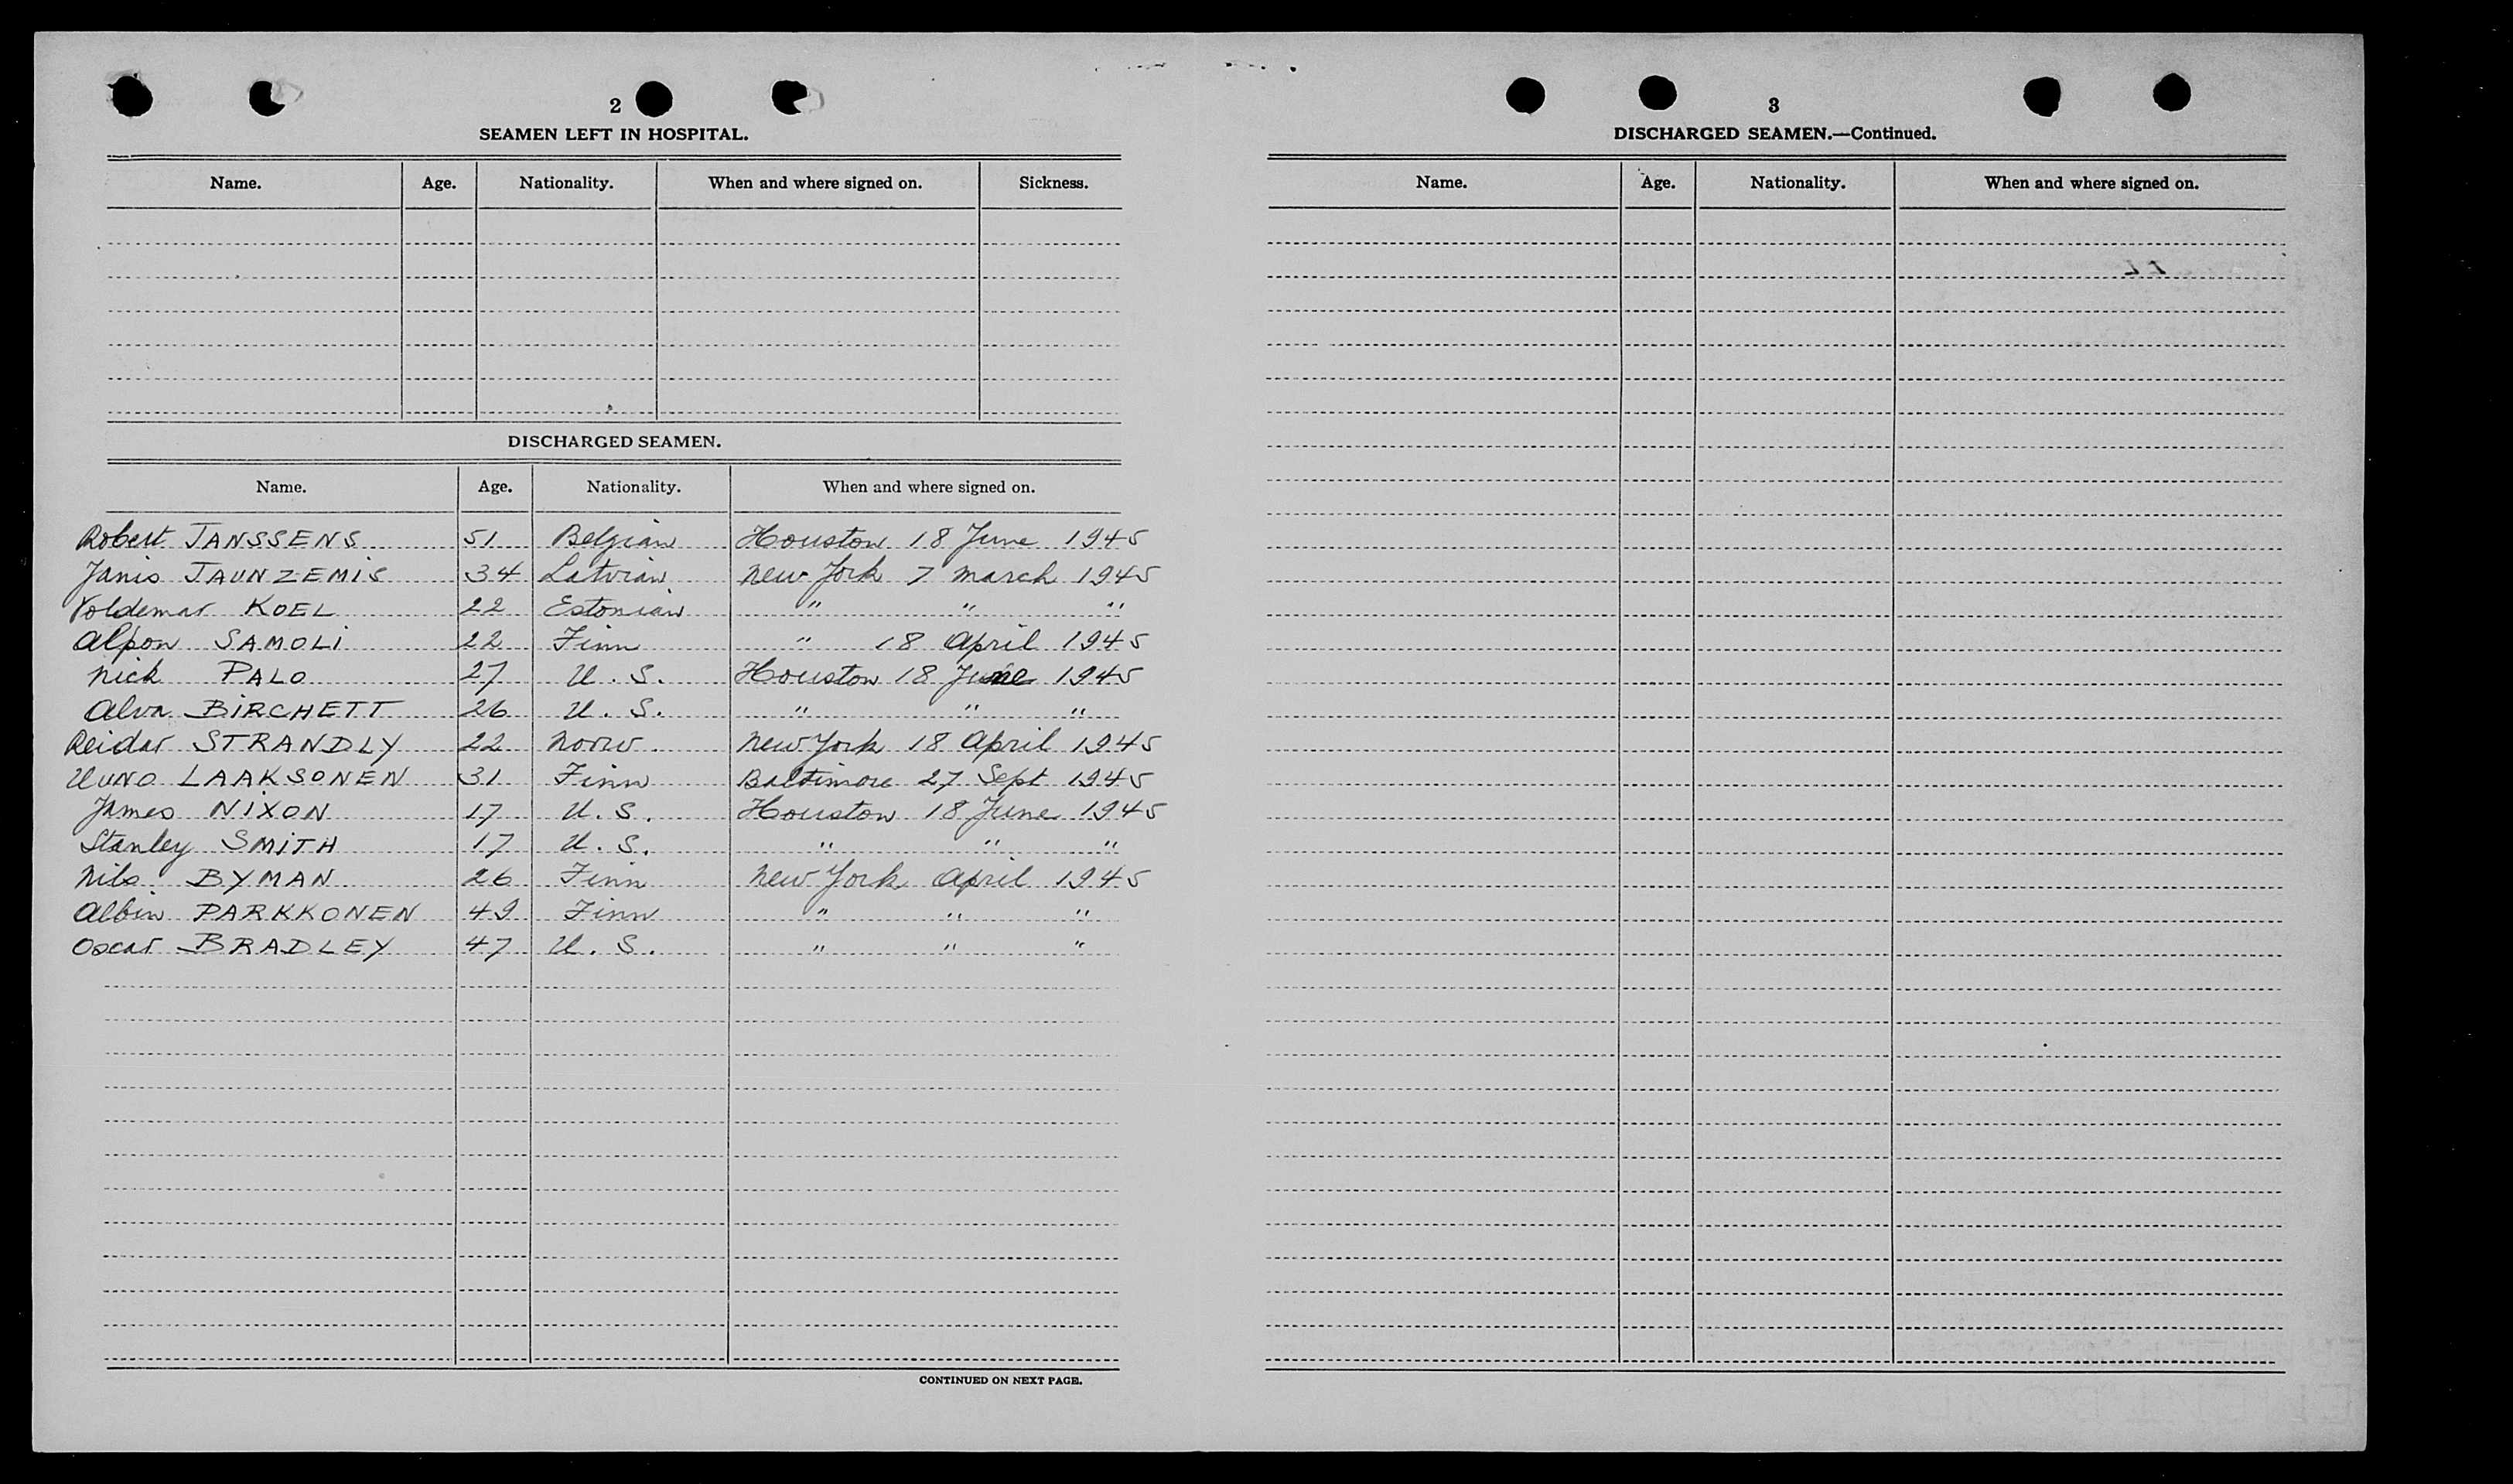 2
SEAMEN LEFT IN HOSPITAL.
Name. Age. Nationality. When and where signed on. Sickness.
DISCHARGED SEAMEN.
Name. Age. Nationality. When and where signed on.
Robert JANSSENS 51 Belgian Houston 18 June 1945
Janis JAUNZEMIS 34 Latvian New York 7 March 1945
Voldemar KOEL 22 Estonian " " "
Alpon SAMOLI 22 Finn " 18 April 1945
Nick PALO 27 U.S. Houston 18 June 1945
Alva BIRCHETT 26 U.S. " " "
Reidar STRANDLY 22 Norw. New York 18 April 1945
Uuno LAAKSONEN 31 Finn Baltimore 27 Sept 1945
James NIXON 17 U.S. Houston 18 June 1945
Stanley SMITH 17 U.S. " " "
Nils BYMAN 26 Finn New York April 1945
Albin PARKKONEN 49 Finn " " "
Oscar BRADLEY 47 U.S. " " "
CONTINUED ON NEXT PAGE.
3
DISCHARGED SEAMEN.—Continued.
Name. Age. Nationality. When and where signed on.